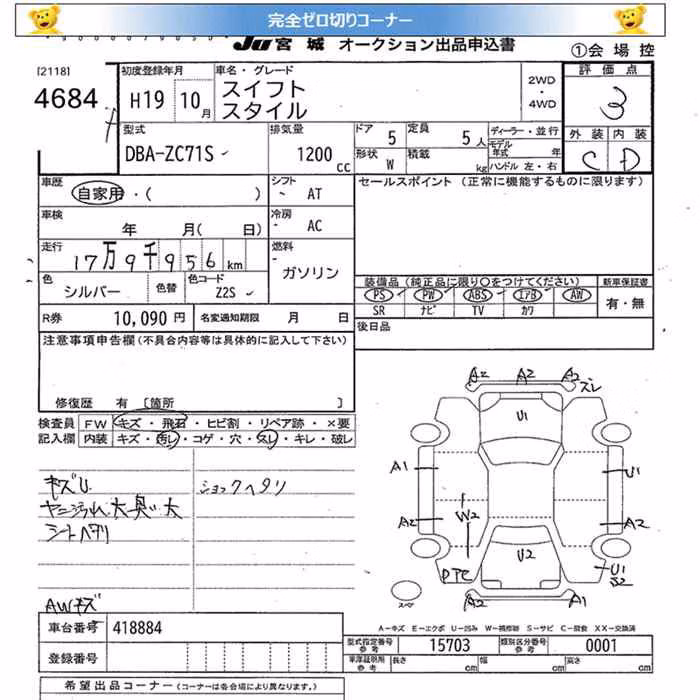 完全ゼロ切りコーナー
JU宮城 オークション出品申込書
①会場控
[2118]
4684
初度登録年月
H19 10月
車名・グレード
スイフト
スタイル
2WD
・
4WD
評価点
3
外装 内装
C D
型式
DBA-ZC71S
排気量
1200 cc
ドア 5
定員 5人
形状 W
積載 kg
ディーラー・並行
モデル年式 年
ハンドル 左・右
車歴
自家用・( )
シフト
AT
セールスポイント (正常に機能するものに限ります)
車検
年 月( 日)
冷房
AC
走行
17万9千956km
燃料
ガソリン
色
シルバー
色替
色コード
Z2S
装備品 (純正品に限り○をつけてください)
新車保証書
PS PW ABS エアB AW
有・無
SR ナビ TV カワ
R券 10,090円
名変通知期限 月 日
後日品
注意事項申告欄(不具合内容等は具体的に記入して下さい)
修復歴 有 [箇所 ]
検査員
記入欄
FW キズ・飛石・ヒビ割・リペア跡・×要
内装 キズ・汚レ・コゲ・穴・スレ・キレ・破レ
キズU
ショックヘタリ
ヤニ汚れ大 臭い大
シートヘタリ
AWキズ
A2 A2 A2 スレ
U1
A1
U1
A2
W2
A2
U2
U1
S2
A2
A1
スペア
A-キズ E-エクボ U-凹み W-補修跡 S-サビ C-腐食 XX-交換済
車台番号 418884
型式指定番号 参考 15703
類別区分番号 参考 0001
登録番号
車庫証明用 参考 長さ cm 幅 cm 高さ cm
希望出品コーナー (コーナーは各会場により異なります。)